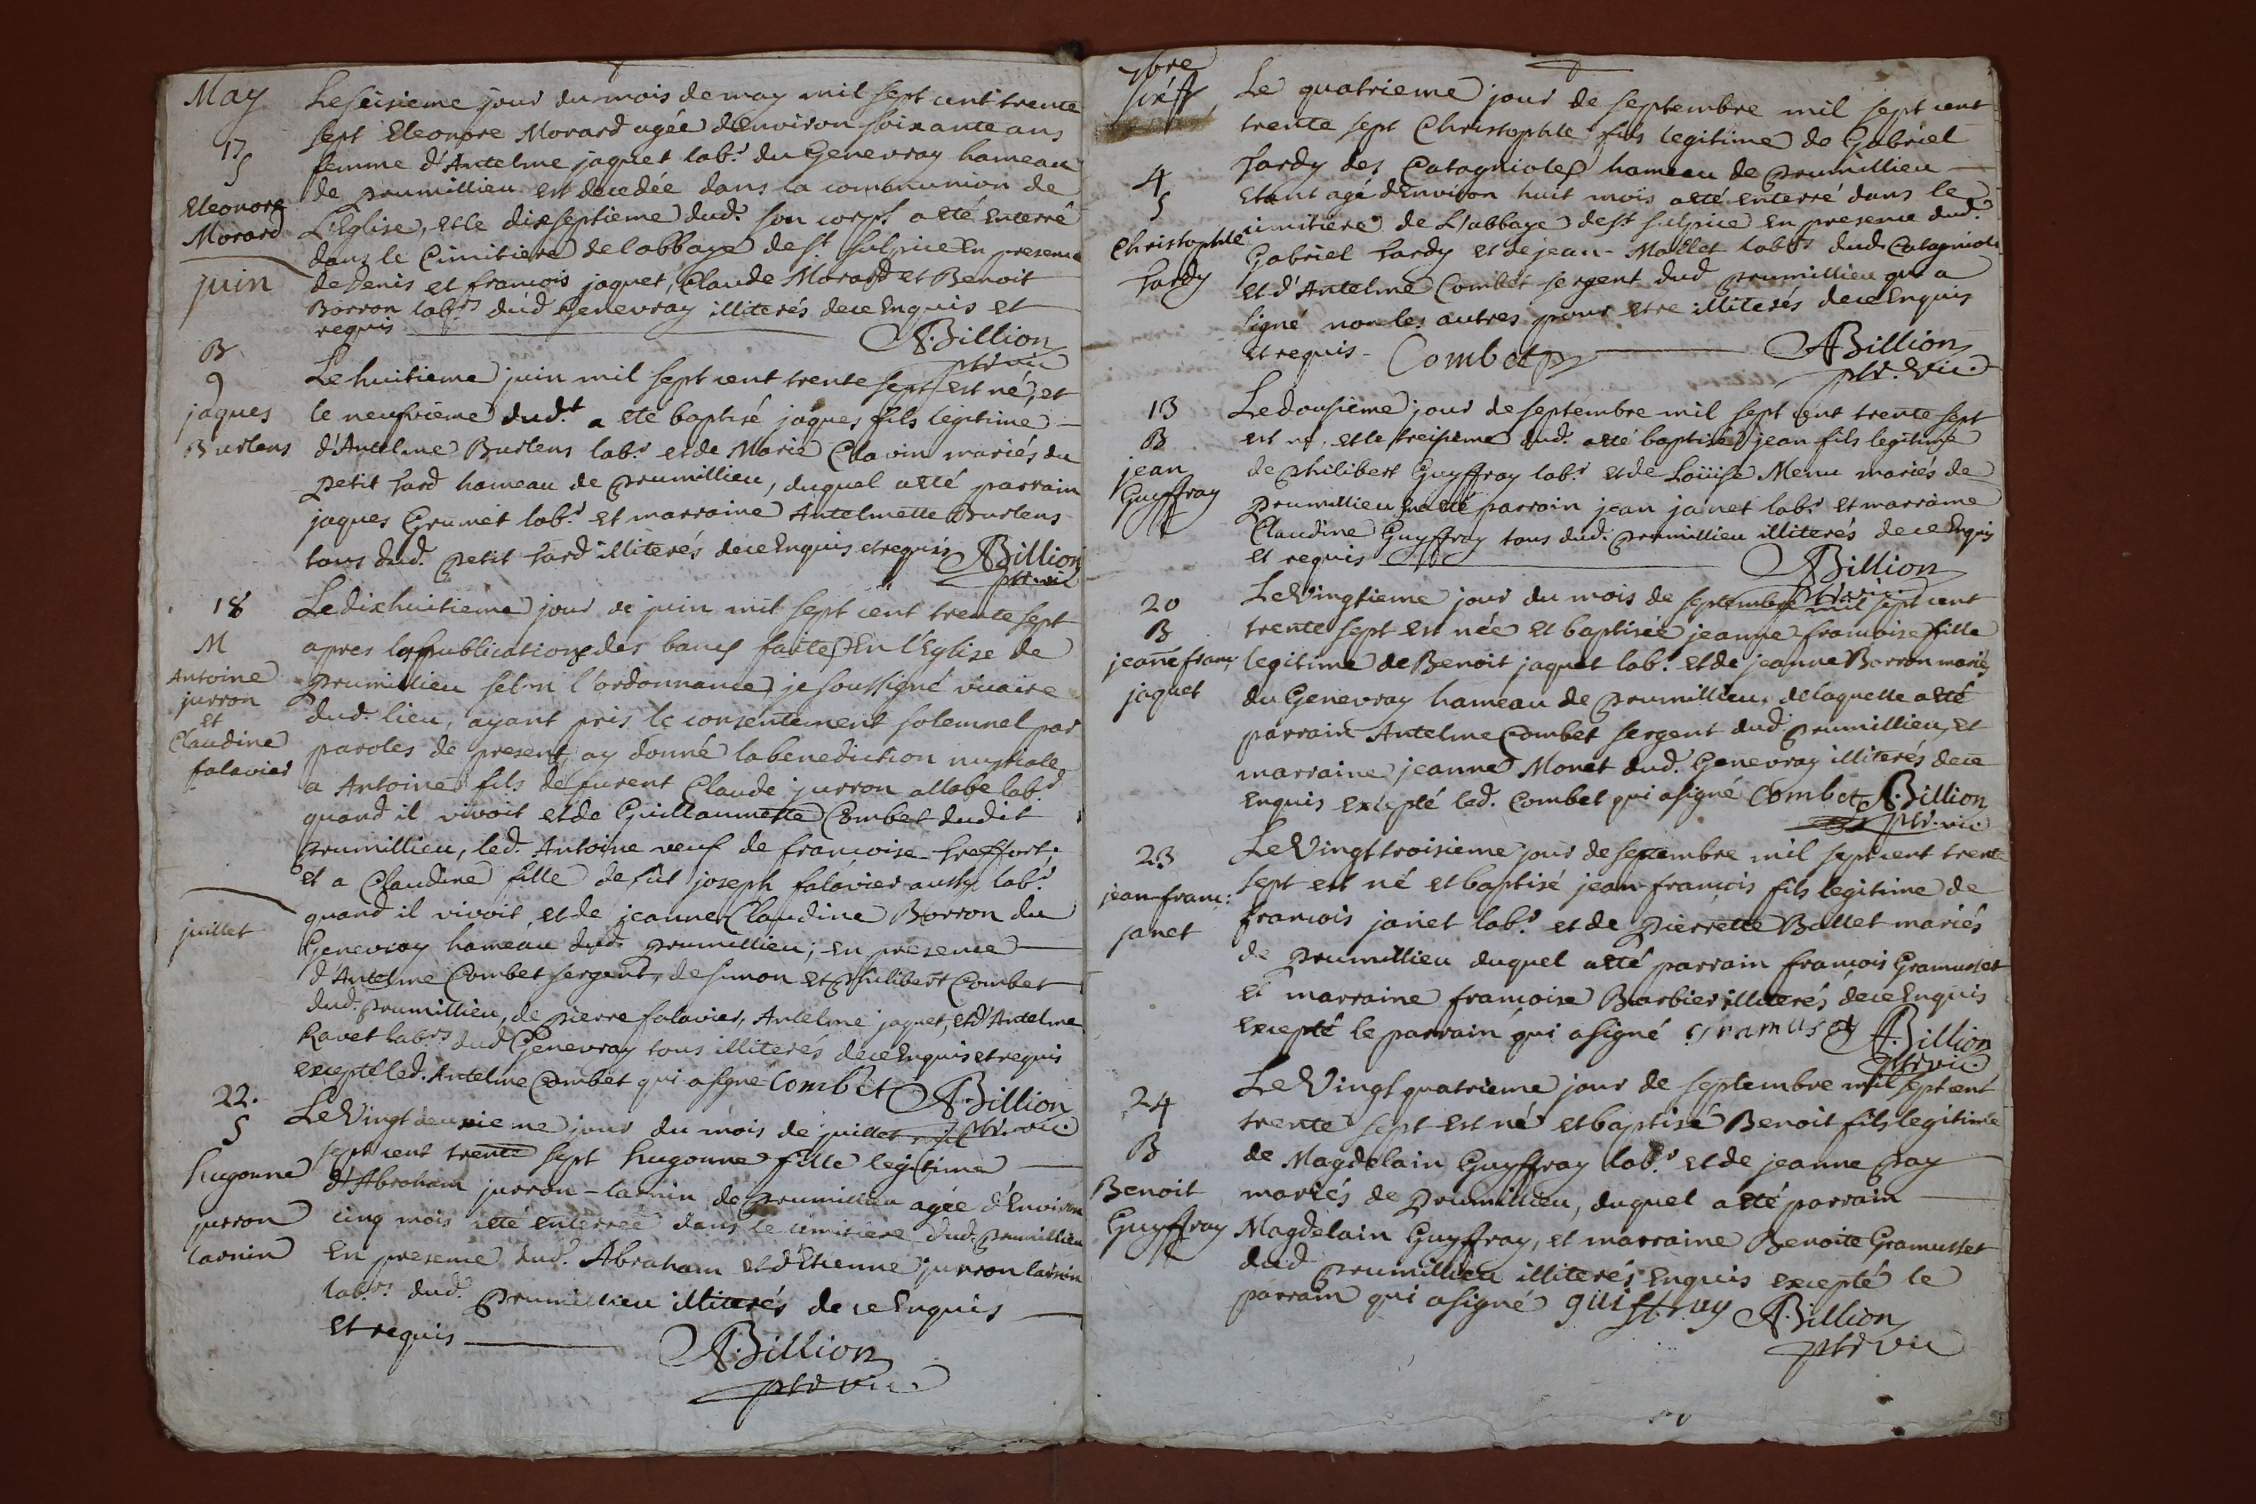 May
Le seisieme jour du mois de may mil sept cent trente
17
sept Eleonore Morard agée d'Environ soixante ans
S
femme d'Antelme jaquet lab.r du Genevray hameau
de prumillieu est decedée dans la communion de
Eleonore
L'Eglise, et le dixseptieme dud. son corps a eté enterré
Morard
dans le Cimitiere de l'abbaye de st. sulpice En presence
juin
de Denis et francois jaquet, Claude Morard et Benoit
Borron lab.rs dud. Genevray illiterés de ce Enquis et
requis
ABillion
ptre vic
B
9
Le huitieme juin mil sept cent trente sept est né, et
jaques
le neufvieme dud.t a eté baptisé jaques fils legitime
Burlens
d'Antelme Burlens lab.r et de Marie Clavin mariés du
petit hard hameau de prumillieu, duquel a eté parrain
jaques Grumet lab.r et marraine Antelmette Burlens
tous dud. petit hard illiterés de ce Enquis et requis ABillion
ptre vic
18
Le dixhuitieme jour de juin mil sept cent trente sept
M
apres les publications des bancs faites En l'Eglise de
Antoine
prumillieu selon l'ordonnance, je soussigné vicaire
jurron
dud. lieu, ayant pris le consentement solemnel par
et
Claudine
paroles de present, ay donné la benediction nuptiale
falavier
a Antoine fils de furent Claude jurron allobe lab.r
quand il vivoit et de Guillaumette Combet dudit
prumillieu, led. Antoine veuf de francoise treffort.
et a Claudine fille de fût joseph falavier aussy lab.r
quand il vivoit et de jeanne Claudine Borron du
juillet
Genevray hameau dud. prumillieu; en presence
d'Antelme Combet sergent, de simon et philibert Combet
dud. prumillieu, de pierre falavier, Antelme jaquet, et d'Antelme
Ravet lab.rs dud. Genevray tous illiterés de ce Enquis et requis
excepté led. Antelme Combet qui a signé Combet ABillion
ptre vic.
22.
Le Vingt deuxieme jour du mois de juillet mil
S
sept cent trente sept hugonne fille legitime
hugonne
d'Abraham jurron-larnin de prumillieu agée d'Environ
jurron
cinq mois a eté enterrée dans le cimitiere dud. prumillieu
larnin
En presence dud. Abraham et d'Etienne jurron larnin
lab.rs dud. prumillieu illiterés de ce Enquis
et requis
ABillion
ptre vic.
7bre
Le quatrieme jour de septembre mil sept cent
trente sept Christophle fils legitime de Gabriel
hardy des Catagnioles hameau de prumillieu
4
Etant agé d'Environ huit mois a eté enterré dans le
S
cimitiere de L'abbaye de st sulpice En presence dud.
Christophle
Gabriel hardy et de jean Mallet lab.rs dud. Catagniole
hardy
et d'Antelme Combet sergent dud. prumillieu qui a
signé non les autres pour etre illiterés de ce Enquis
et requis - Combet
ABillion
ptr. vic.
13
Le dousieme jour de septembre mil sept cent trente sept
B
est né, et le treisieme dud. a eté baptisé jean fils legitime
jean
de philibert Guyffray lab.r et de Louïse Menu mariés de
Guyffray
prumillieu, en a eté parrain jean janet lab.r et marraine
Claudine Guyffray tous dud. prumillieu illiterés de ce Enquis
et requis
ABillion
ptre vic.
20
Le Vingtieme jour du mois de septembre mil sept cent
B
trente sept est née et baptisée jeanne francoise fille
jeanne franç
legitime de Benoit jaquet lab.r et de jeanne Borron mariés
jaquet
du Genevray hameau de prumillieu, de laquelle a eté
parrain Antelme Combet sergent dud. prumillieu, et
marraine jeanne Monet dud. Genevray illiterés de ce
Enquis excepté led. Combet qui a signé Combet ABillion
ptr. vic.
23
Le Vingt troisieme jour de septembre mil sept cent trente
jean franc:
sept est né et baptisé jean francois fils legitime de
janet
francois janet lab.r et de pierrette Ballet mariés
de prumillieu duquel a eté parrain francois Gramusset
et marraine francoise Barbier illiterés de ce Enquis
excepté le parrain qui a signé gramuset ABillion
ptre vic
24
Le Vingt quatrieme jour de septembre mil sept cent
trente sept est né et baptisé Benoit fils legitime
B
de Magdelain Guyffray lab.r et de jeanne pay
Benoit
mariés de prumillieu, duquel a eté parrain
Guyffray
Magdelain Guyffray, et marraine Benoite Gramusset
dud. prumillieu illiterés Enquis excepté le
parrain qui a signé guiffray ABillion
ptre vic